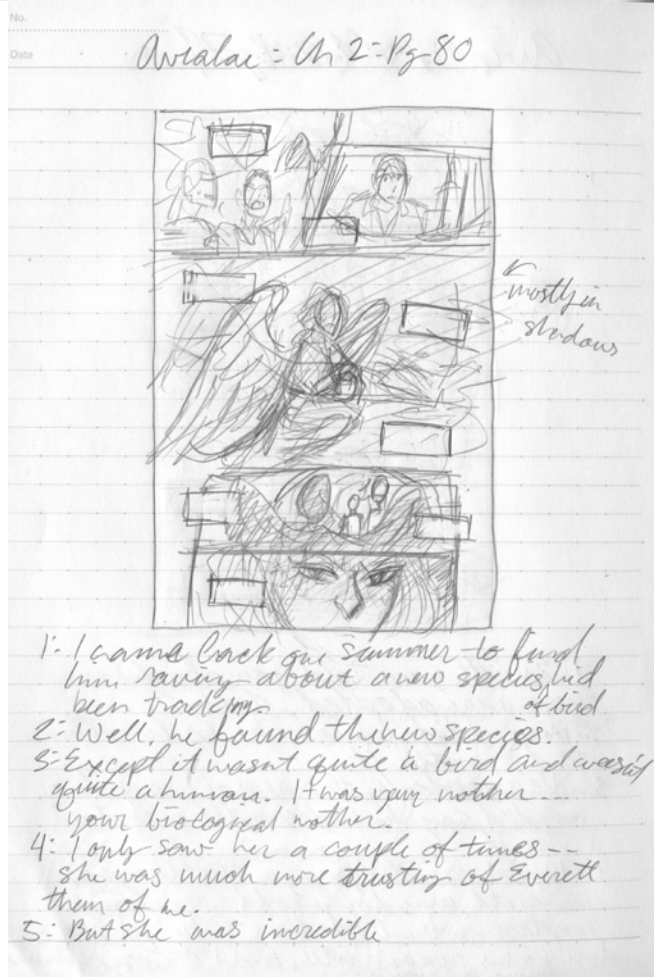 No.
Date
Avialae = Ch 2 = Pg 80
mostly in
shadows
1: I came back one summer to find
him raving about a new species, he'd
been tracking of bird
2: Well, he found the new species.
3: Except it wasn't quite a bird and wasn't
quite a human. It was your mother ---
your biological mother.
4: I only saw her a couple of times --
she was much more trusting of Everett
then of me.
5: But she was incredible